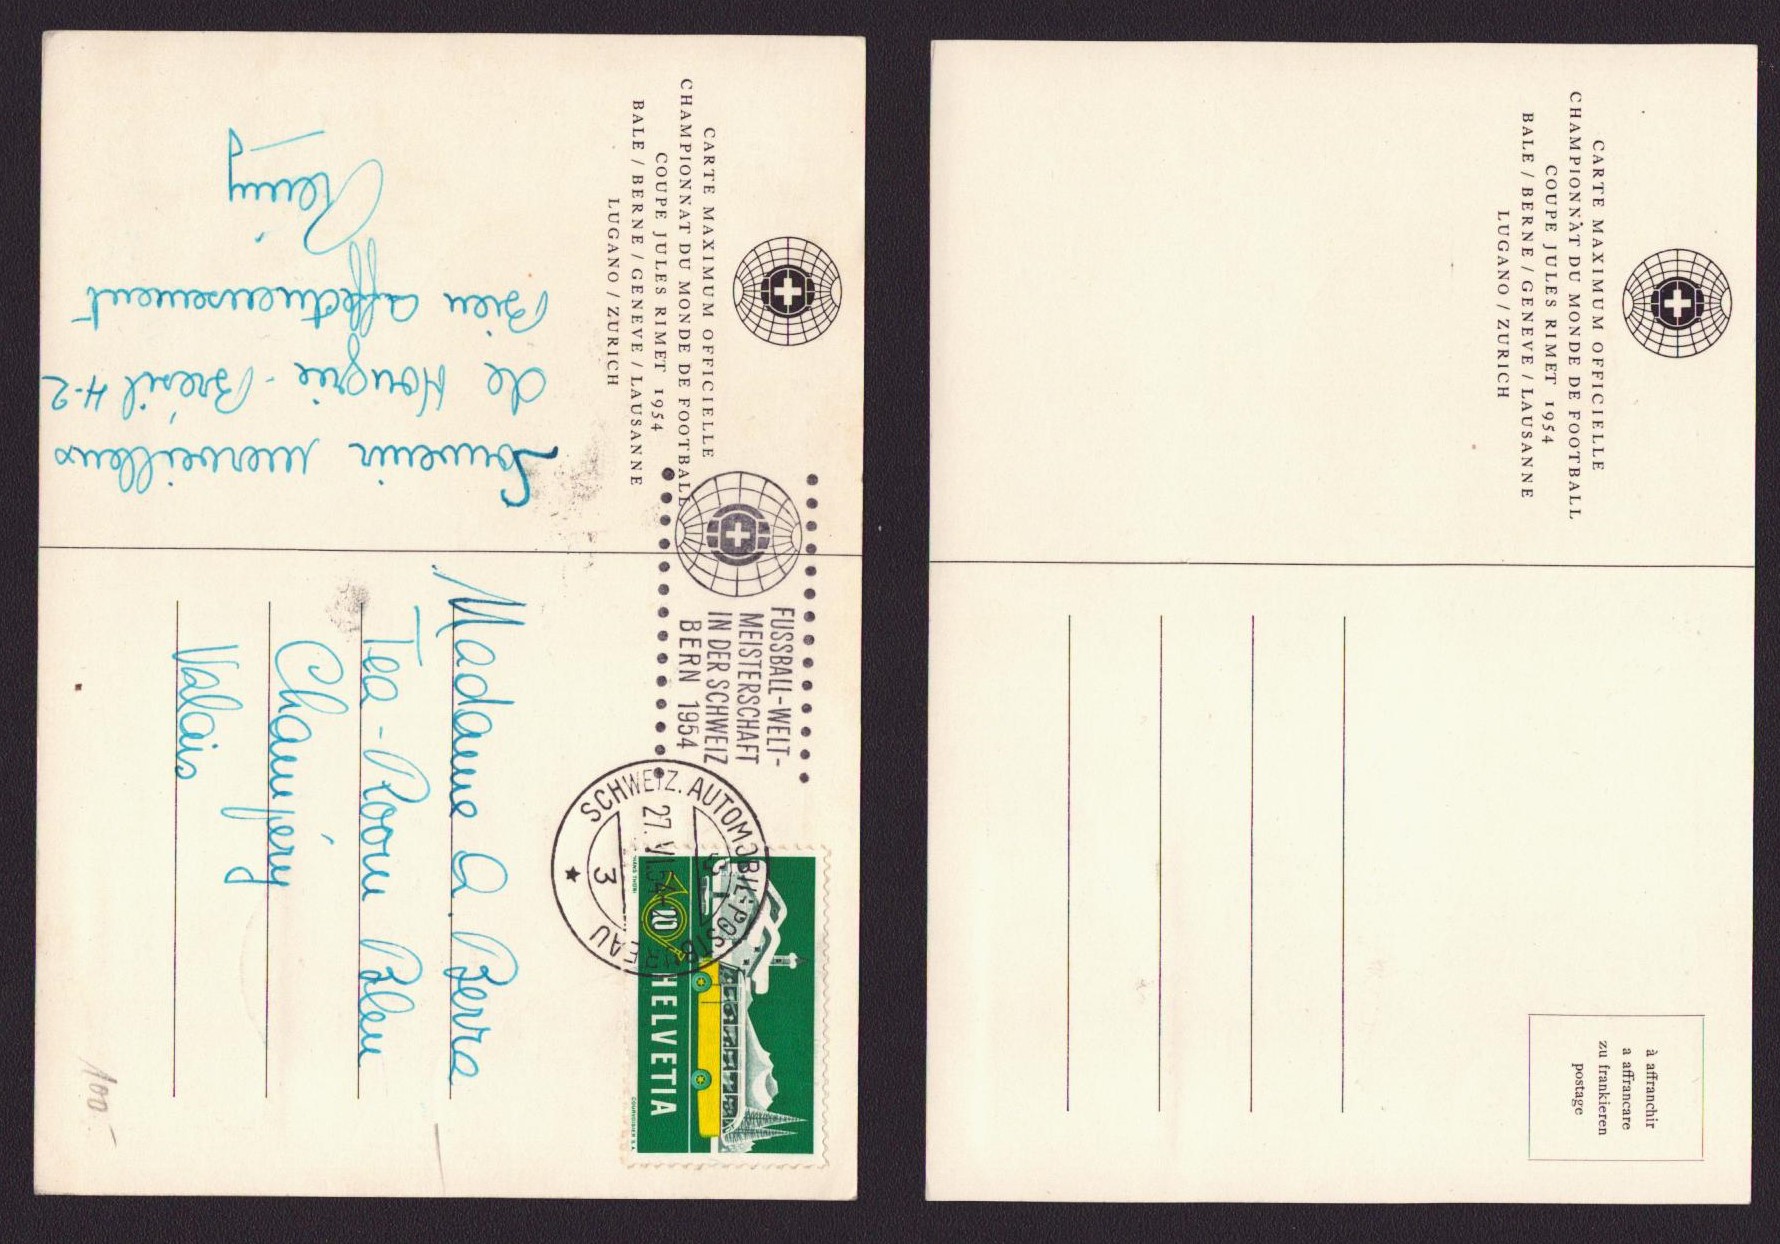 CARTE MAXIMUM OFFICIELLE
CHAMPIONNAT DU MONDE DE FOOTBALL
COUPE JULES RIMET 1954
BALE / BERNE / GENEVE / LAUSANNE
LUGANO / ZURICH
Souvenir merveilleux
de Hongrie - Brésil 4-2
Bien affectueusement
Rémy
FUSSBALL-WELT-
MEISTERSCHAFT
IN DER SCHWEIZ
BERN 1954
SCHWEIZ. AUTOMOBIL-POSTBUREAU
27. VI. 54
3
10
HELVETIA
HANS THÖNI
COURVOISIER S.A.
Madame A. Berra
Tea-Room Bleu
Champéry
Valais
100.-
CARTE MAXIMUM OFFICIELLE
CHAMPIONNAT DU MONDE DE FOOTBALL
COUPE JULES RIMET 1954
BALE / BERNE / GENEVE / LAUSANNE
LUGANO / ZURICH
à affranchir
a affrancare
zu frankieren
postage